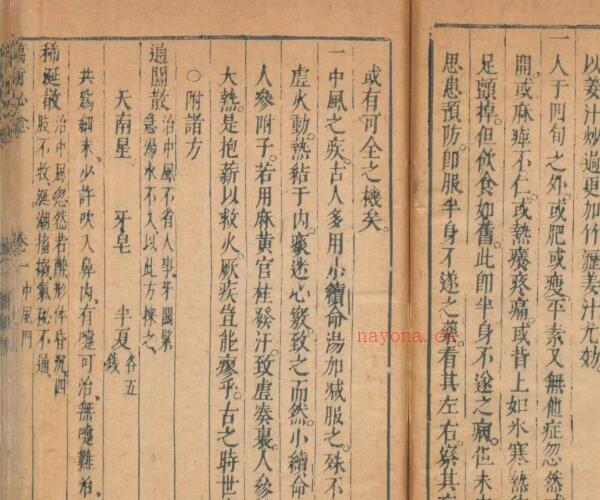 以姜汁炒過更加竹瀝姜汁尤妙
一人于四旬之外或肥或瘦平素又無他症忽然
開或麻痺不仁或熱癢疼痛或背上如氷寒熱
足顫掉但飲食如舊此即半身不遂之病但未
思患預防即服半身不遂之藥看其左右察其
或有可全之機矣
一中風之疾古人多用小續命湯加减服之殊不
虚火動熱結于内痰迷心竅致之而然小續命
人參附子若用麻黄官桂發汗致虚奏裏人參
大熱是抱薪以救火厥疾豈能瘳乎古之時世
○附諸方
通關散 治中風不省人事牙關緊急湯水不入以此方探之
天南星 牙皂 半夏各五錢
共為細末少許吹入鼻内有嚏可治無嚏難治
稀涎散 治中風忽然若醉形体昏悶四肢不收涎潮搐搦氣秘不通
卷一中風門
nayona.cn